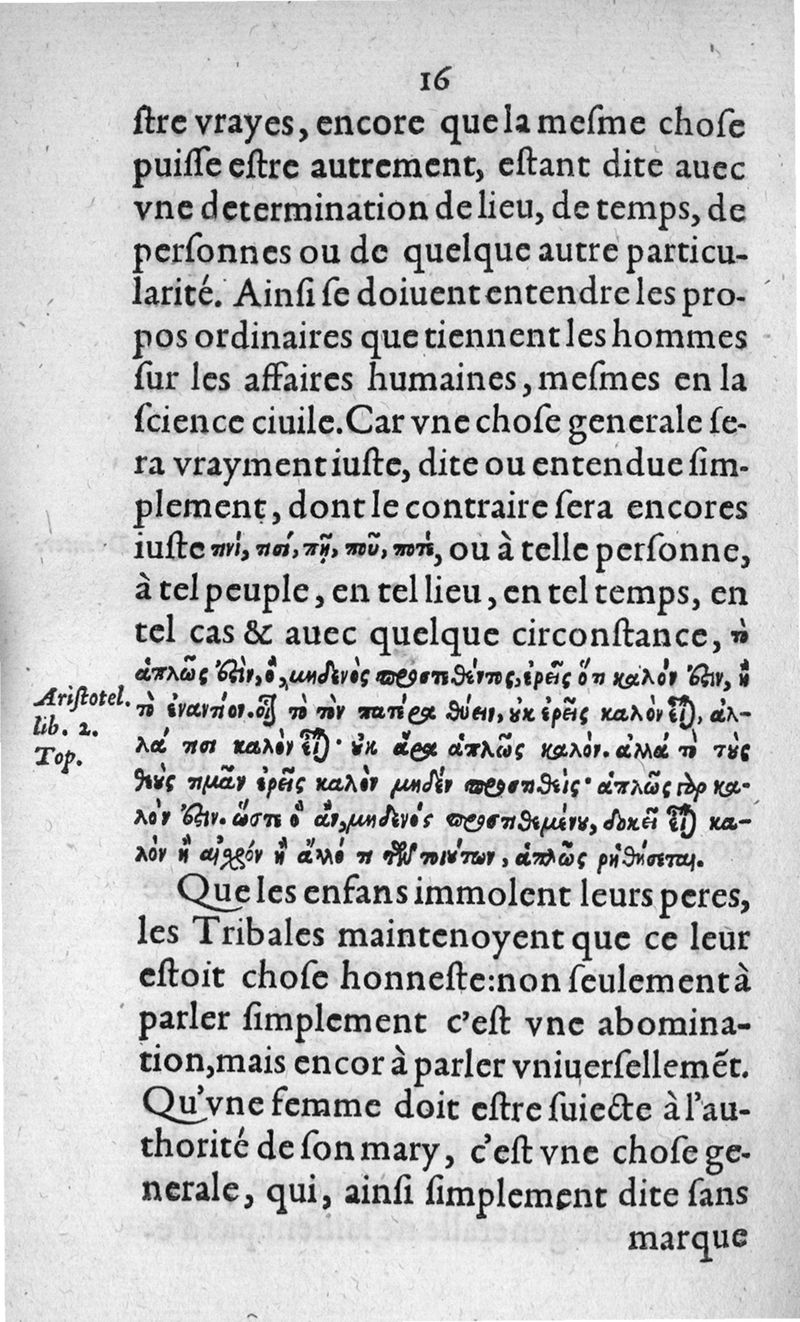 16
ſtre vrayes, encore que la meſme choſe
puiſſe eſtre autrement, eſtant dite auec
vne determination de lieu, de temps, de
perſonnes ou de quelque autre particu-
larité. Ainſi ſe doiuent entendre les pro-
pos ordinaires que tiennent les hommes
ſur les affaires humaines, meſmes en la
ſcience ciuile. Car vne choſe generale ſe-
ra vrayment iuſte, dite ou entendue ſim-
plement, dont le contraire ſera encores
iuſte τινὶ, τισί, πῇ, ποῦ, ποτὲ, ou à telle perſonne,
à tel peuple, en tel lieu, en tel temps, en
tel cas & auec quelque circonſtance, τὸ
ἁπλῶς ἐστὶν, ὅ, μηδενὸς προστιθέντος, ἐρεῖς ὅτι καλόν ἐστιν, ἢ
τὸ ἐναντίον. οἷον τὸ τὸν πατέρα θύειν, οὐκ ἐρεῖς καλὸν εἶναι, ἀλ-
λά τισι καλὸν εἶναι· οὐκ ἄρα ἁπλῶς καλόν. ἀλλὰ τὸ τοὺς
θεοὺς τιμᾶν ἐρεῖς καλὸν μηδὲν προστιθεὶς· ἁπλῶς γὰρ κα-
λόν ἐστιν. ὥστε ὃ ἂν, μηδενὸς προστιθεμένου, δοκεῖ εἶναι κα-
λὸν ἢ αἰσχρόν ἢ ἄλλό τι τῶν τοιούτων, ἁπλῶς ῥηθήσεται.
Ariſtotel.
lib. 2.
Top.
Que les enfans immolent leurs peres,
les Tribales maintenoyent que ce leur
eſtoit choſe honneſte: non ſeulement à
parler ſimplement c'eſt vne abomina-
tion, mais encor à parler vniuerſellemẽt.
Qu'vne femme doit eſtre ſuiecte à l'au-
thorité de ſon mary, c'eſt vne choſe ge-
nerale, qui, ainſi ſimplement dite ſans
marque